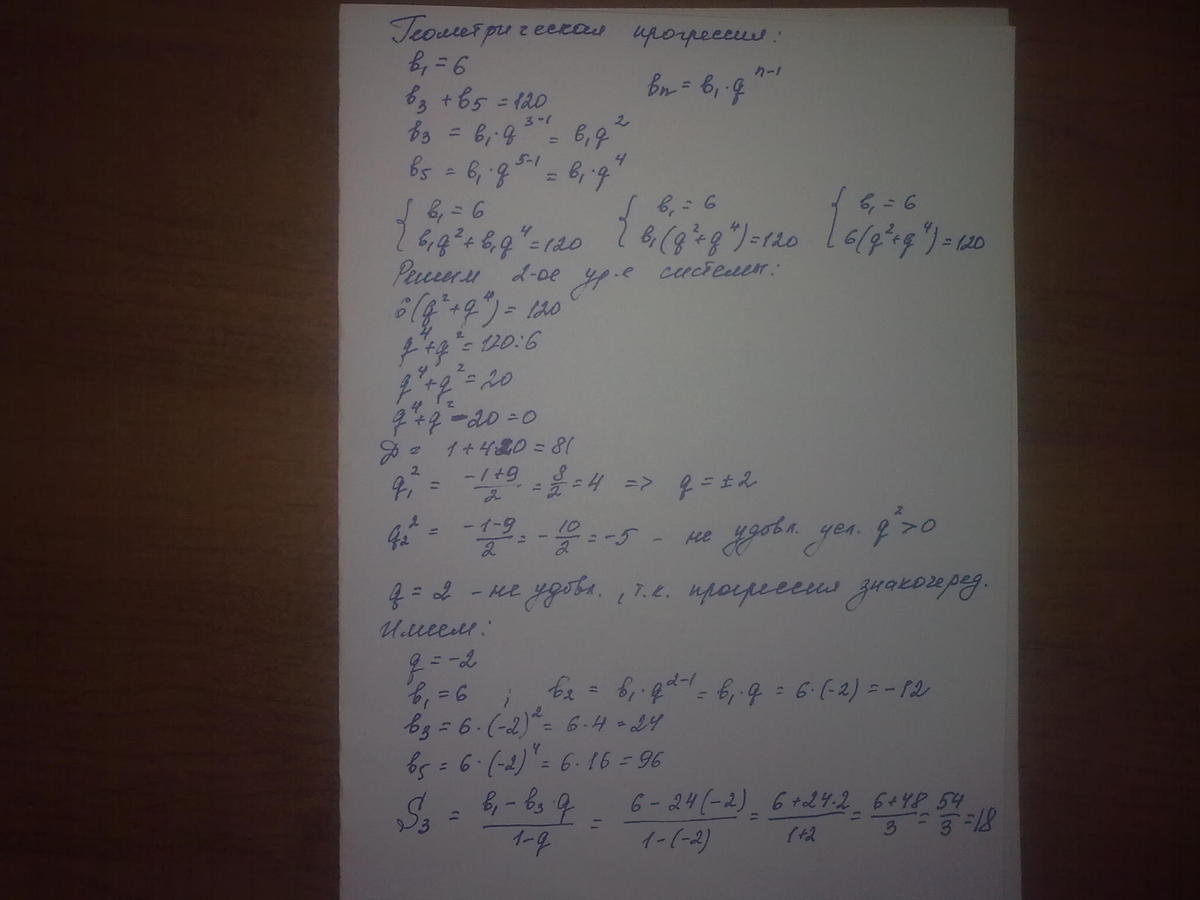 Геометрическая прогрессия:
b₁ = 6
bₙ = b₁·qⁿ⁻¹
b₃ + b₅ = 120
b₃ = b₁·q³⁻¹ = b₁q²
b₅ = b₁·q⁵⁻¹ = b₁·q⁴
{ b₁ = 6 { b₁ = 6 { b₁ = 6
b₁q² + b₁q⁴ = 120 b₁(q²+q⁴) = 120 6(q²+q⁴) = 120
Решим 2-ое ур-е системы:
6(q²+q⁴) = 120
q⁴+q² = 120:6
q⁴+q² = 20
q⁴+q²-20=0
D = 1+4·20 = 81
q₁² = (-1+9)/2 = 8/2 = 4 => q = ±2
q₂² = (-1-9)/2 = -10/2 = -5 - не удовл. усл. q²>0
q = 2 - не удовл., т.к. прогрессия знакочеред.
Имеем:
q = -2
b₁ = 6 ; b₂ = b₁·q²⁻¹ = b₁·q = 6·(-2) = -12
b₃ = 6·(-2)² = 6·4 = 24
b₅ = 6·(-2)⁴ = 6·16 = 96
S₃ = (b₁ - b₃·q)/(1-q) = (6-24(-2))/(1-(-2)) = (6+24·2)/(1+2) = (6+48)/3 = 54/3 = 18